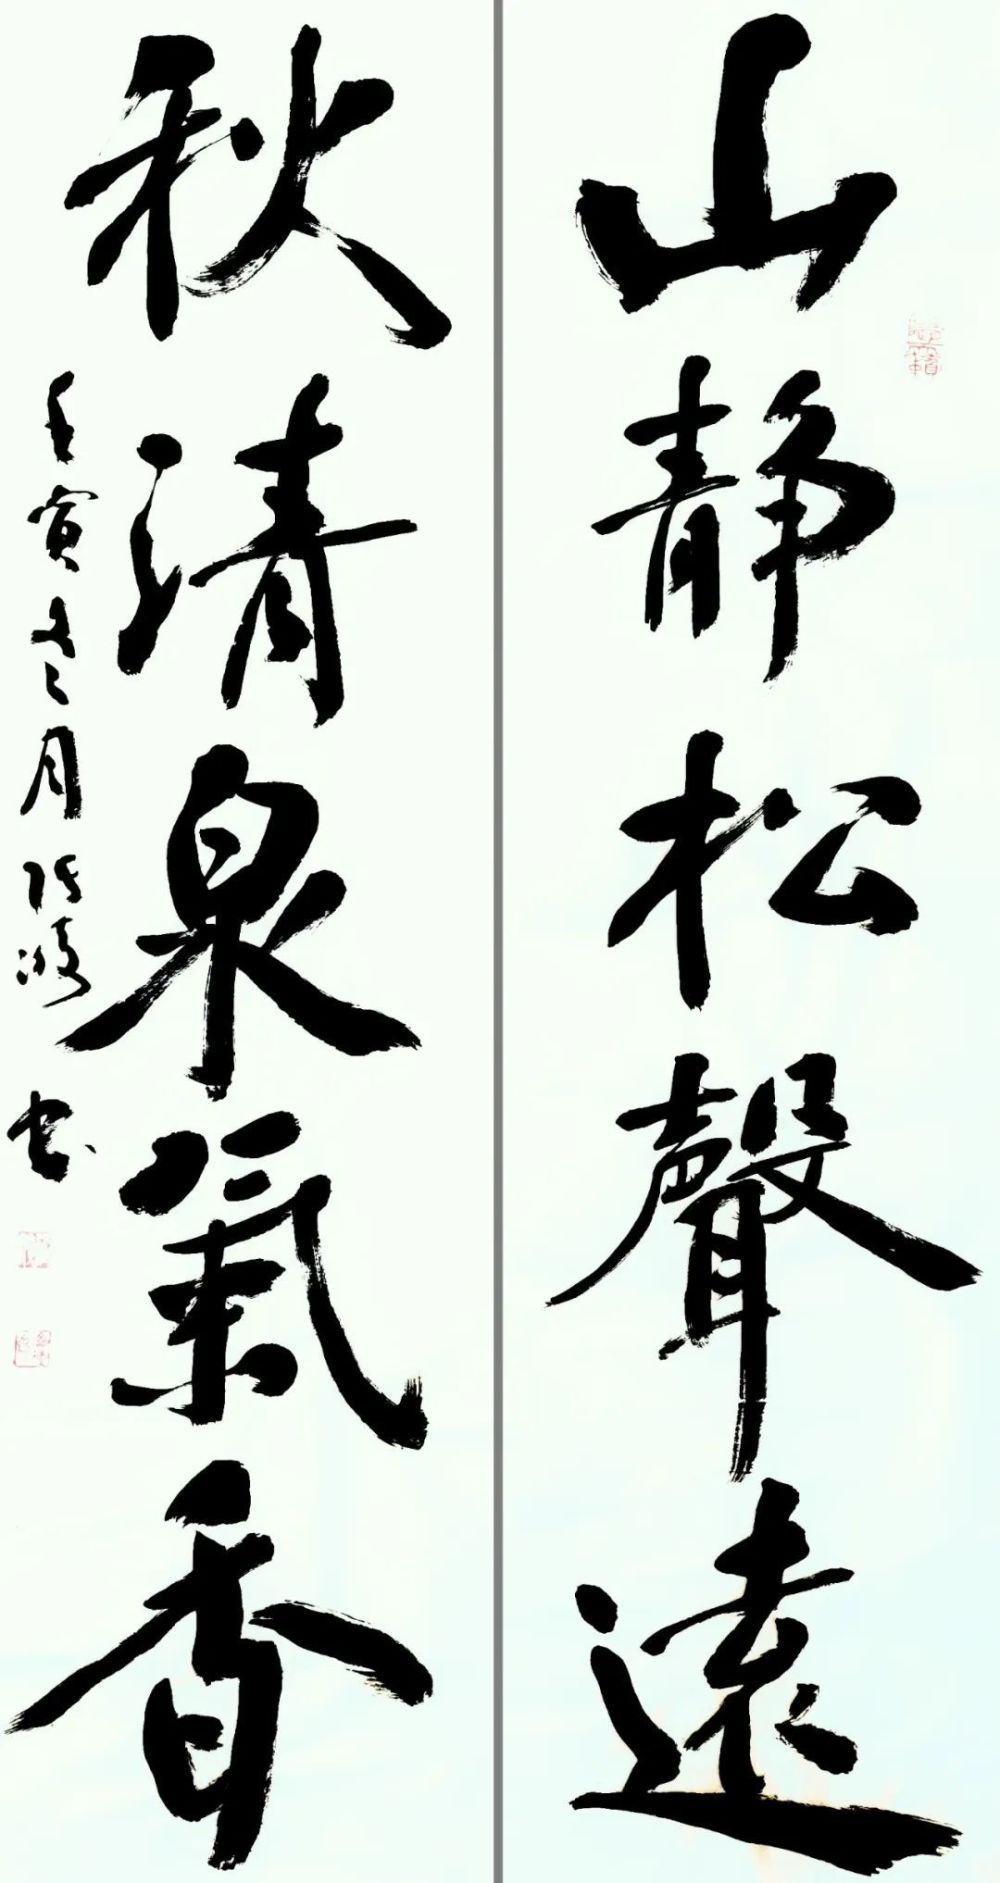 山静松聲遠
秋清泉氣香
壬寅冬月張凌書